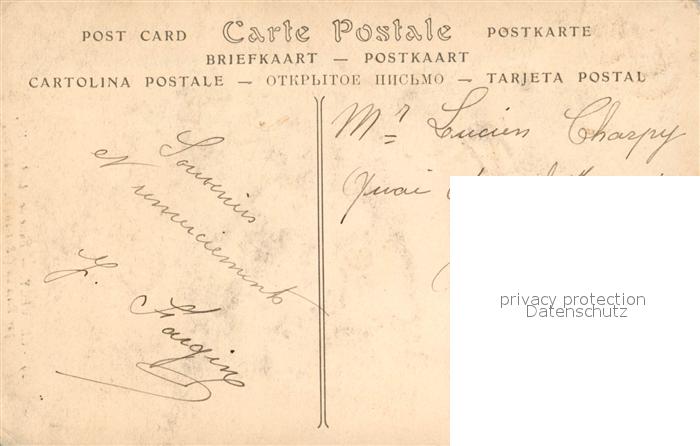 POST CARD Carte Postale POSTKARTE
BRIEFKAART — POSTKAART
CARTOLINA POSTALE — ОТКРЫТОЕ ПИСЬМО — TARJETA POSTAL
Mr Lucien Charpy
Quai
Souvenirs
et remerciements
privacy protection
Datenschutz